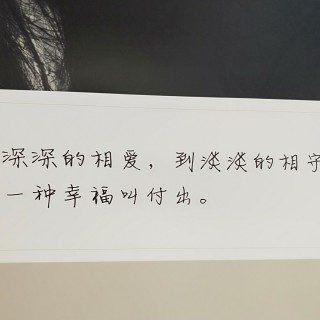 深深的相爱，到淡淡的相守
一种幸福叫付出。